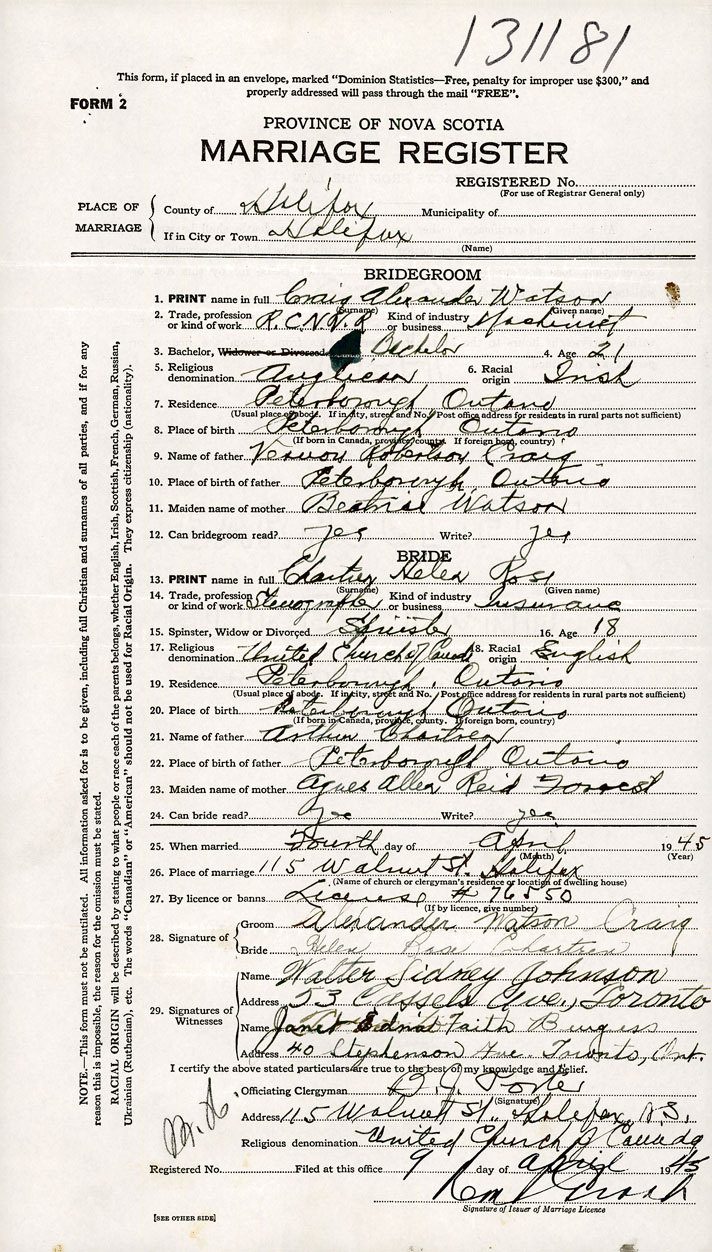 131181
This form, if placed in an envelope, marked "Dominion Statistics—Free, penalty for improper use $300," and
properly addressed will pass through the mail "FREE".
FORM 2
PROVINCE OF NOVA SCOTIA
MARRIAGE REGISTER
REGISTERED No.
(For use of Registrar General only)
PLACE OF MARRIAGE
County of Halifax Municipality of
If in City or Town Halifax
(Name)
BRIDEGROOM
1. PRINT name in full Craig Alexander Watson
(Surname) (Given name)
2. Trade, profession or kind of work R.C.N.V.R Kind of industry or business Machinist
3. Bachelor, Widower or Divorced Bachelor 4. Age 21
5. Religious denomination Anglican 6. Racial origin Irish
7. Residence Peterborough Ontario
(Usual place of abode. If in city, street and No. Post office address for residents in rural parts not sufficient)
8. Place of birth Peterborough Ontario
(If born in Canada, province, county. If foreign born, country)
9. Name of father Vernon Robertson Craig
10. Place of birth of father Peterborough Ontario
11. Maiden name of mother Beatrice Watson
12. Can bridegroom read? yes Write? yes
BRIDE
13. PRINT name in full Chartren Helen Rose
(Surname) (Given name)
14. Trade, profession or kind of work Stenographer Kind of industry or business Insurance
15. Spinster, Widow or Divorced Spinster 16. Age 18
17. Religious denomination United Church of Canada 18. Racial origin English
19. Residence Peterborough, Ontario
(Usual place of abode. If in city, street and No. Post office address for residents in rural parts not sufficient)
20. Place of birth Peterborough Ontario
(If born in Canada, province, county. If foreign born, country)
21. Name of father Arthur Chartren
22. Place of birth of father Peterborough Ontario
23. Maiden name of mother Agnes Allen Reid Forrest
24. Can bride read? Yes Write? yes
25. When married Fourth day of April 1945
(Month) (Year)
26. Place of marriage 115 Walnut St. Halifax
(Name of church or clergyman's residence or location of dwelling house)
27. By licence or banns License # 76550
(If by licence, give number)
28. Signature of
Groom Alexander Watson Craig
Bride Helen Rose Chartren
29. Signatures of Witnesses
Name Walter Sidney Johnson
Address 53 Cassels Ave., Toronto
Name Janet Edna Faith Burgess
Address 40 Stephenson Ave. Toronto, Ont.
I certify the above stated particulars are true to the best of my knowledge and belief.
Officiating Clergyman Porter
(Signature)
Address 115 Walnut St., Halifax, N.S.
Religious denomination United Church of Canada
Registered No. Filed at this office 9 day of April 1945
Signature of Issuer of Marriage Licence
[SEE OTHER SIDE]
NOTE.—This form must not be mutilated. All information asked for is to be given, including full Christian and surnames of all parties, and if for any
reason this is impossible, the reason for the omission must be stated.
RACIAL ORIGIN will be described by stating to what people or race each of the parents belongs, whether English, Irish, Scottish, French, German, Russian,
Ukrainian (Ruthenian), etc. The words "Canadian" or "American" should not be used for Racial Origin. They express citizenship (nationality).